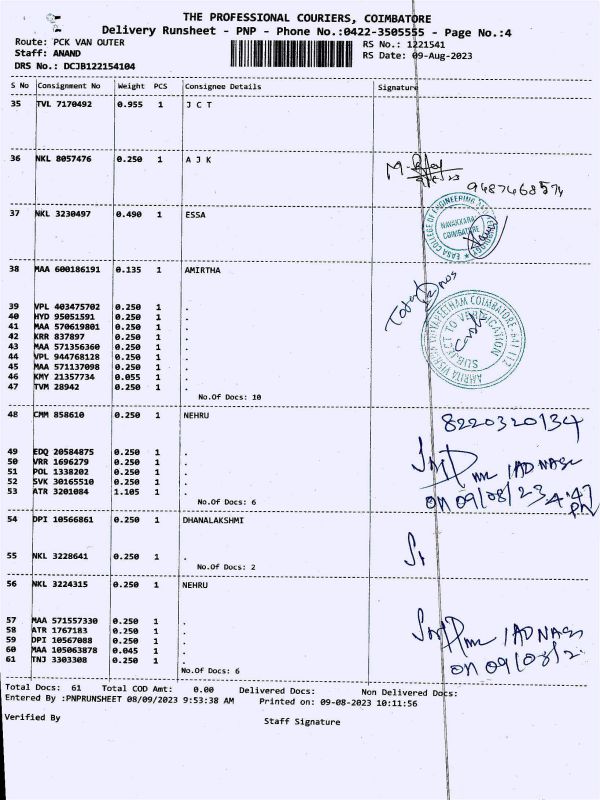 THE PROFESSIONAL COURIERS, COIMBATORE
Delivery Runsheet - PNP - Phone No.:0422-3505555 - Page No.:4
Route: PCK VAN OUTER RS No.: 1221541
Staff: ANAND RS Date: 09-Aug-2023
DRS No.: DCJB122154104
S No Consignment No Weight PCS Consignee Details Signature
35 TVL 7170492 0.955 1 J C T
36 NKL 8057476 0.250 1 A J K
9487468574
37 NKL 3230497 0.490 1 ESSA
NAVAKKARAI
COIMBATORE
38 MAA 600186191 0.135 1 AMIRTHA
39 VPL 403475702 0.250 1 .
40 HYD 95051591 0.250 1 .
41 MAA 570619801 0.250 1 .
42 KRR 837897 0.250 1 .
43 MAA 571356360 0.250 1 .
44 VPL 944768128 0.250 1 .
45 MAA 571137098 0.250 1 .
46 KMY 21357734 0.055 1 .
47 TVM 28942 0.250 1 .
No.Of Docs: 10
AMRITA VISHWA VIDYAPEETHAM COIMBATORE-641 112
SUBJECT TO VERIFICATION
48 CMM 858610 0.250 1 NEHRU
8220320134
49 EDQ 20584875 0.250 1 .
50 VRR 1696279 0.250 1 .
51 POL 1338202 0.250 1 .
52 SVK 30165510 0.250 1 .
53 ATR 3201084 1.105 1 .
No.Of Docs: 6
on 09/08/23 4.47 PM
54 DPI 10566861 0.250 1 DHANALAKSHMI
55 NKL 3228641 0.250 1 .
No.Of Docs: 2
56 NKL 3224315 0.250 1 NEHRU
57 MAA 571557330 0.250 1 .
58 ATR 1767183 0.250 1 .
59 DPI 10567088 0.250 1 .
60 MAA 105063878 0.045 1 .
61 TNJ 3303308 0.250 1 .
on 09/08/2
No.Of Docs: 6
Total Docs: 61 Total COD Amt: 0.00 Delivered Docs: Non Delivered Docs:
Entered By :PNPRUNSHEET 08/09/2023 9:53:38 AM Printed on: 09-08-2023 10:11:56
Verified By Staff Signature